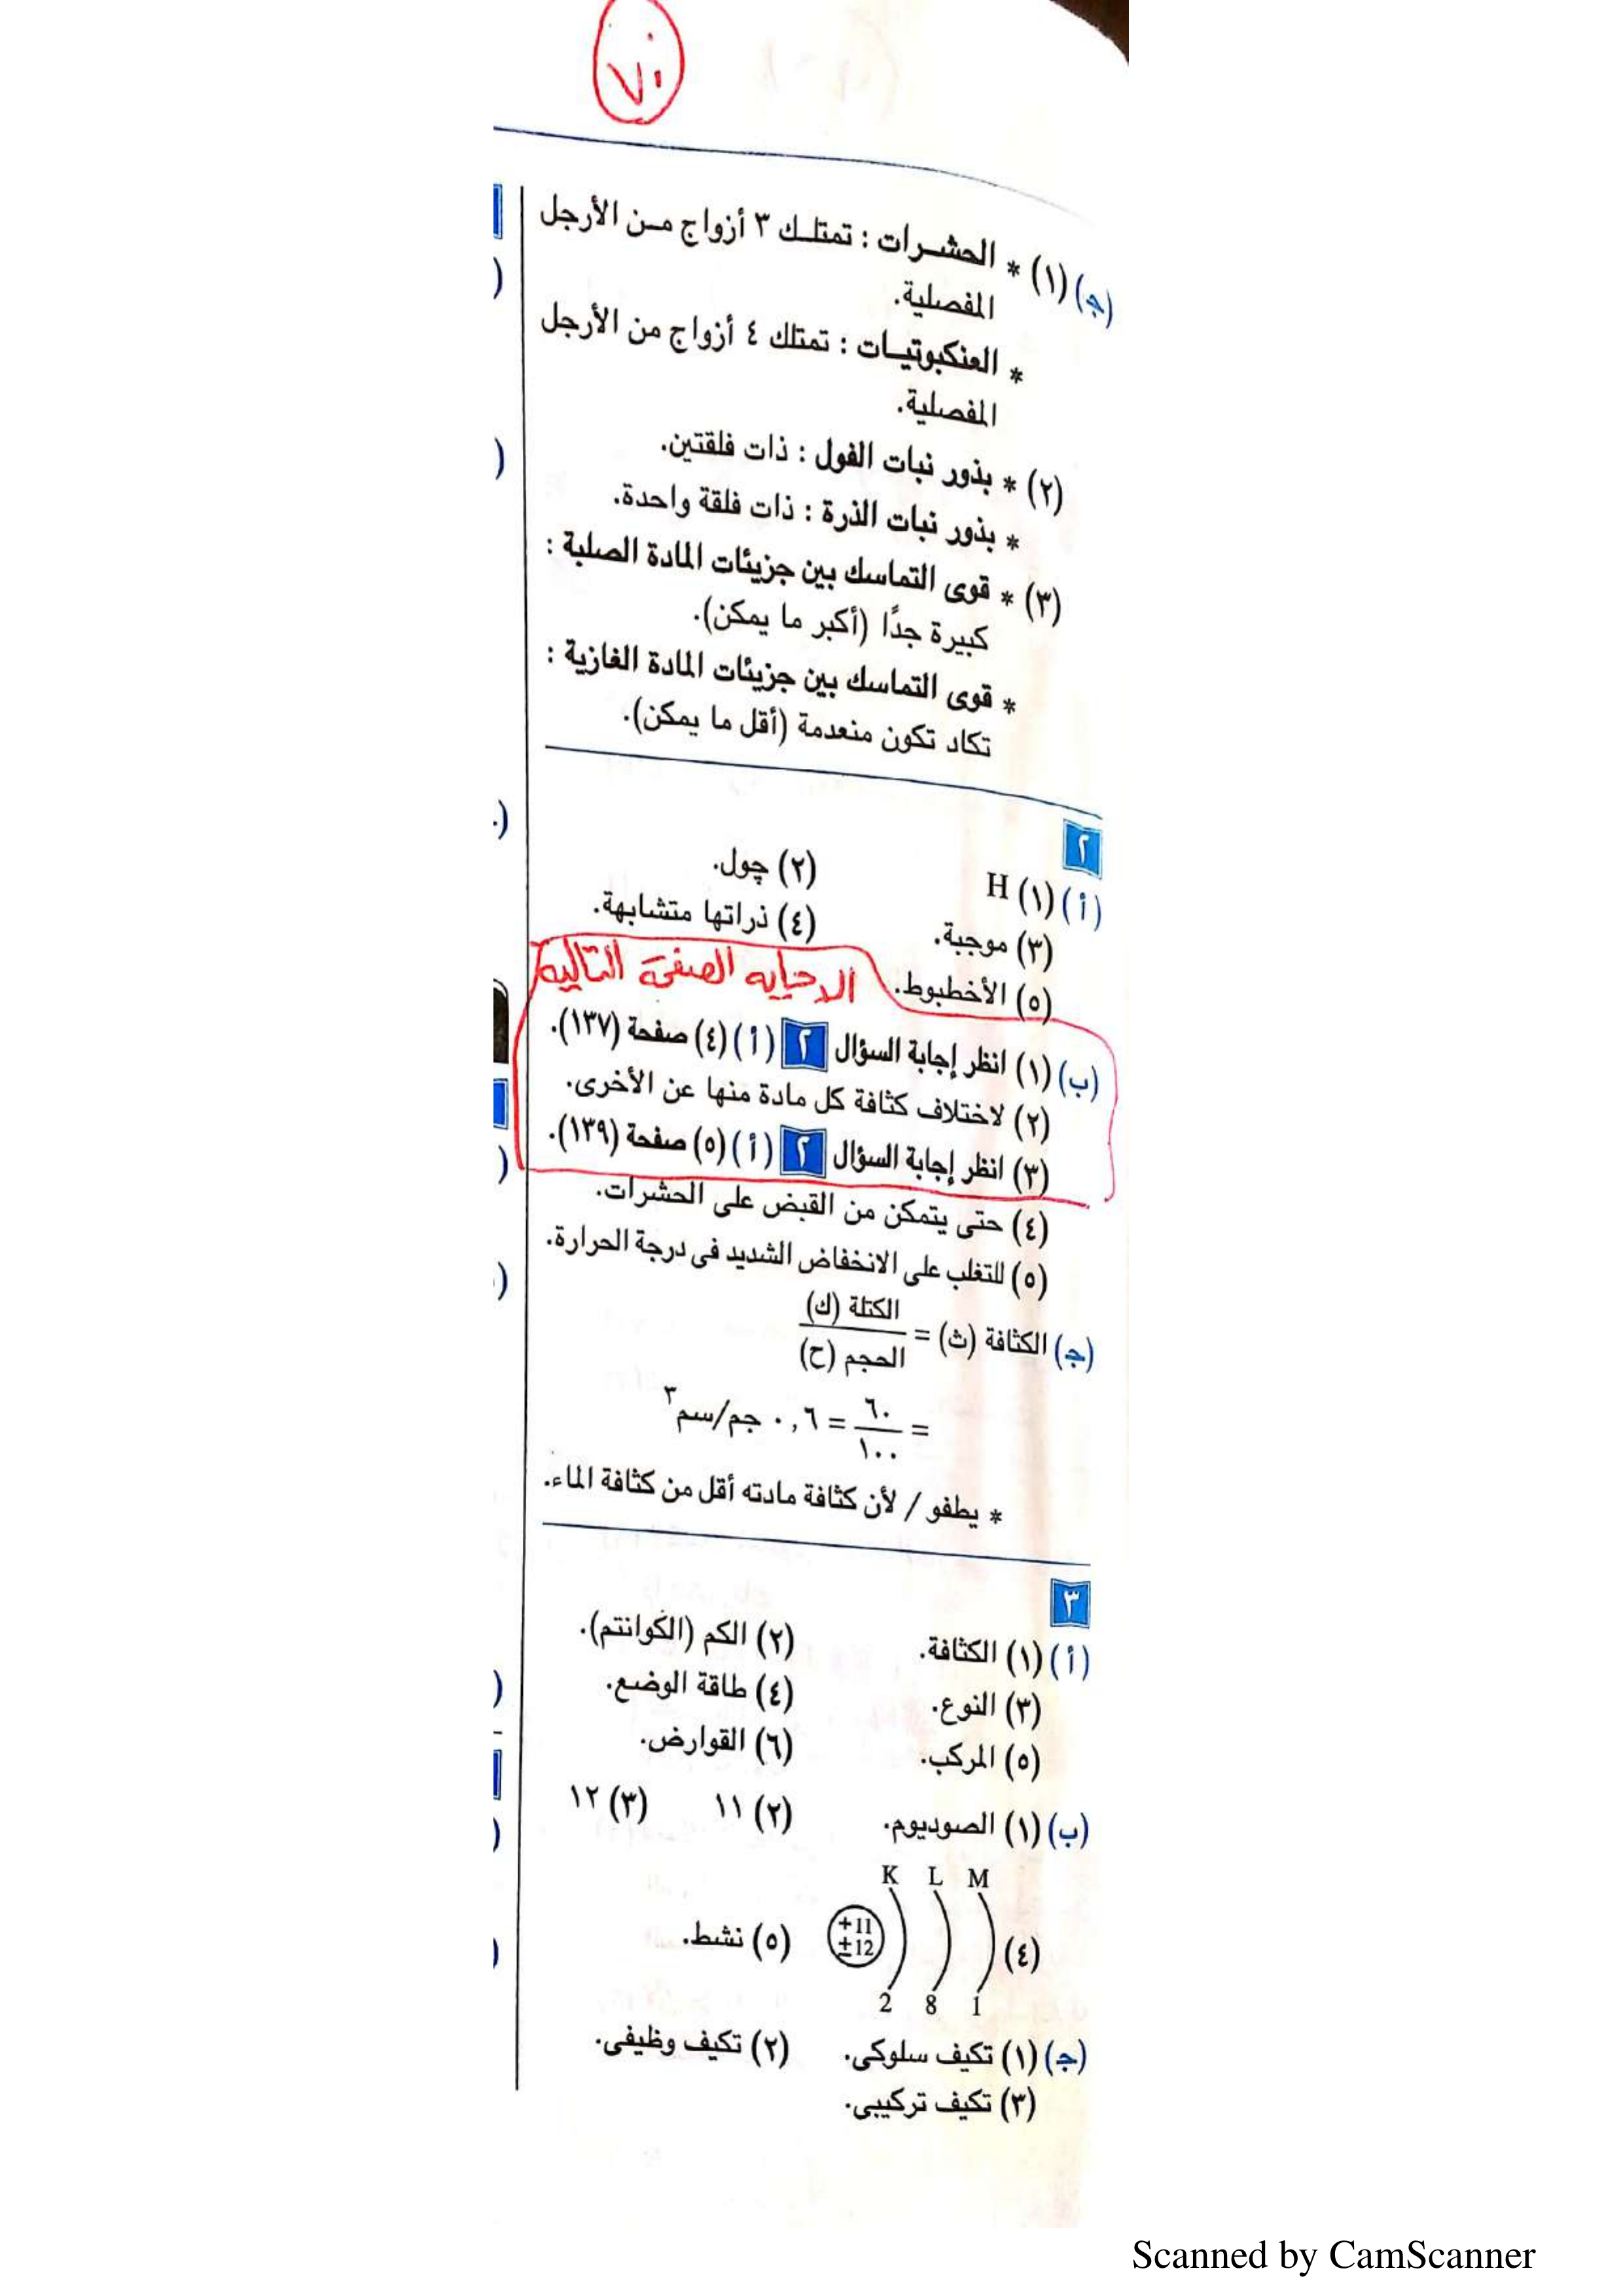 ٧٠
(جـ) (١) * الحشرات : تمتلك ٣ أزواج من الأرجل
المفصلية.
* العنكبوتيات : تمتلك ٤ أزواج من الأرجل
المفصلية.
(٢) * بذور نبات الفول : ذات فلقتين.
* بذور نبات الذرة : ذات فلقة واحدة.
(٣) * قوى التماسك بين جزيئات المادة الصلبة :
كبيرة جدًا (أكبر ما يمكن).
* قوى التماسك بين جزيئات المادة الغازية :
تكاد تكون منعدمة (أقل ما يمكن).
٢
(أ) (١) H (٢) چول.
(٣) موجبة. (٤) ذراتها متشابهة.
(٥) الأخطبوط.
الاجابه الصفحة التاليه
(ب) (١) انظر إجابة السؤال ٢ (أ) (٤) صفحة (١٣٧).
(٢) لاختلاف كثافة كل مادة منها عن الأخرى.
(٣) انظر إجابة السؤال ٢ (أ) (٥) صفحة (١٣٩).
(٤) حتى يتمكن من القبض على الحشرات.
(٥) للتغلب على الانخفاض الشديد فى درجة الحرارة.
(جـ) الكثافة (ث) = الكتلة (ك) / الحجم (ح)
= ٦٠ / ١٠٠ = ٠,٦ جم/سم٣
* يطفو / لأن كثافة مادته أقل من كثافة الماء.
٣
(أ) (١) الكثافة. (٢) الكم (الكوانتم).
(٣) النوع. (٤) طاقة الوضع.
(٥) المركب. (٦) القوارض.
(ب) (١) الصوديوم. (٢) ١١ (٣) ١٢
K L M
(٤) +11 ±12 (٥) نشط.
2 8 1
(جـ) (١) تكيف سلوكى. (٢) تكيف وظيفى.
(٣) تكيف تركيبى.
Scanned by CamScanner